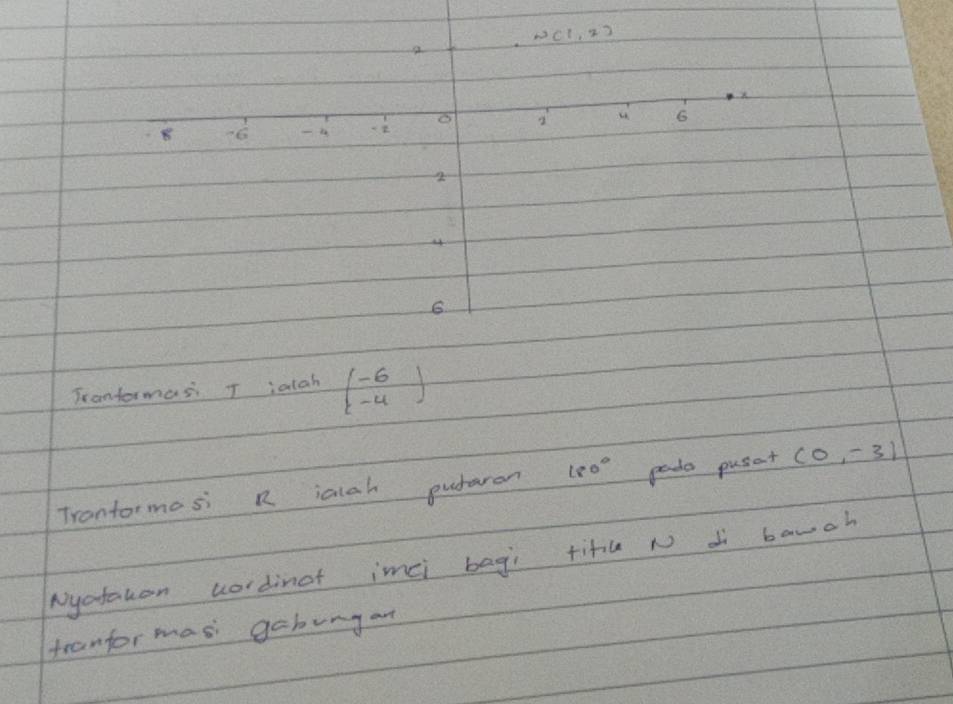 2 N(1,2)
-8 -6 -4 -2 0 2 4 6 x
2
4
6
Tranformasi T ialah (-6
-4)
Tranformasi R ialah putaran 180° pada pusat (0,-3)
Nyatakan kordinat imej bagi titik N di bawah
tranformasi gabungan